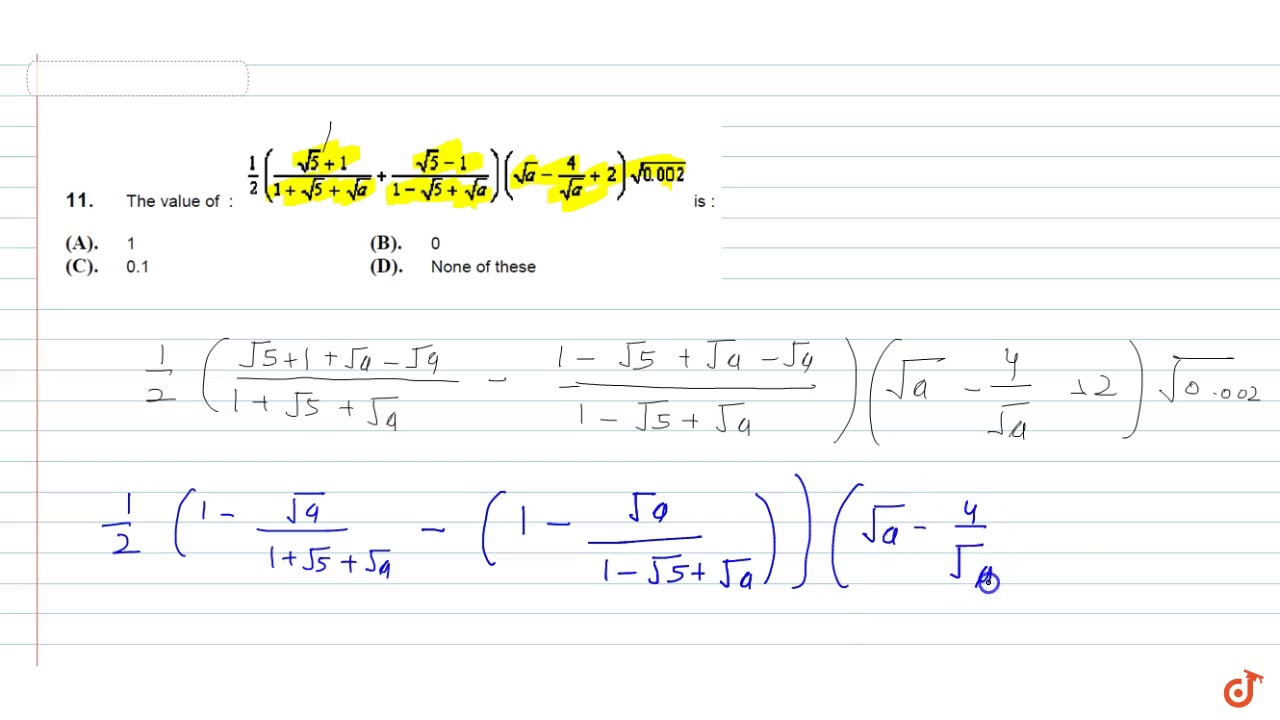 11. The value of : 1/2 ( (√5 + 1)/(1 + √5 + √a) + (√5 − 1)/(1 − √5 + √a) ) ( √a − 4/√a + 2 ) √0.002 is :
(A). 1 (B). 0
(C). 0.1 (D). None of these
1/2 ( (√5 + 1 + √a − √a)/(1 + √5 + √a) − (1 − √5 + √a − √a)/(1 − √5 + √a) ) ( √a − 4/√a + 2 ) √0.002
1/2 ( 1 − √a/(1 + √5 + √a) − ( 1 − √a/(1 − √5 + √a) ) ) ( √a − 4/√a